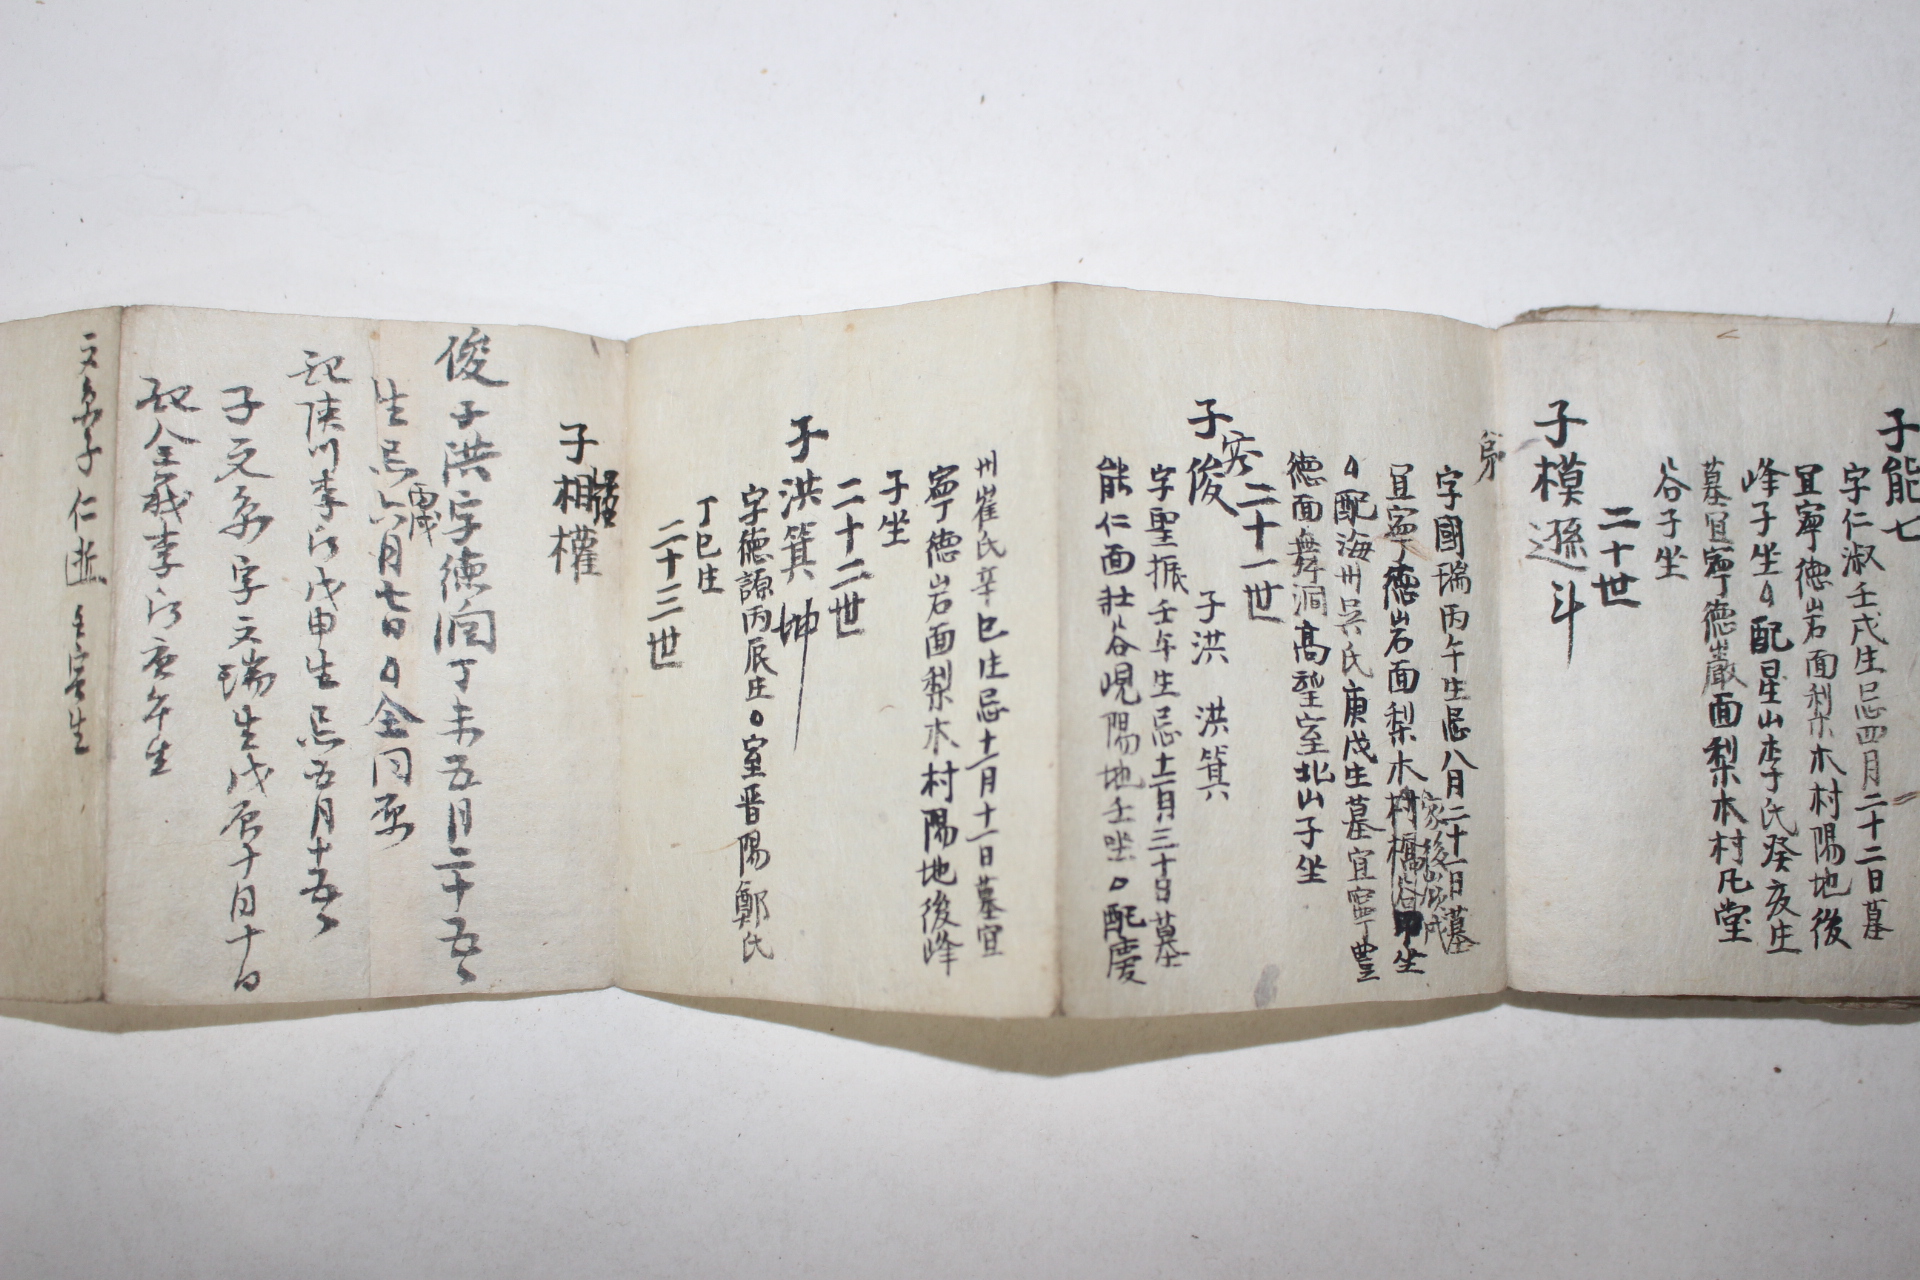 子能七
字仁淑壬戌生忌四月二十二日墓
宜寧德岩面梨木村陽地後
峰子坐〇配星山李氏癸亥生
墓宜寧德巖面梨木村凡堂
谷子坐
二十世
子模遜斗
字國瑞丙午生忌八月二十一日墓
宜寧德岩面梨木村
〇配海州吳氏庚戌生墓宜寧豊
德面舞洞高望室北山子坐
二十一世
子俊 子洪 洪箕
字聖振壬午生忌十二月三十日墓
能仁面壯谷峴陽地壬坐〇配慶
州崔氏辛巳生忌十一月十一日墓宜
寧德岩面梨木村陽地後峰
子坐
二十二世
子洪箕坤
字德謙丙辰生〇室晋陽鄭氏
丁巳生
二十三世
子相權
俊子洪字德潤丁未五月二十五日
生忌六月七日〇仝同原
配陜川李氏戊申生忌五月十五日
子文 字文瑞生戊辰十月十日
配全義李氏庚午生
文 子仁 生